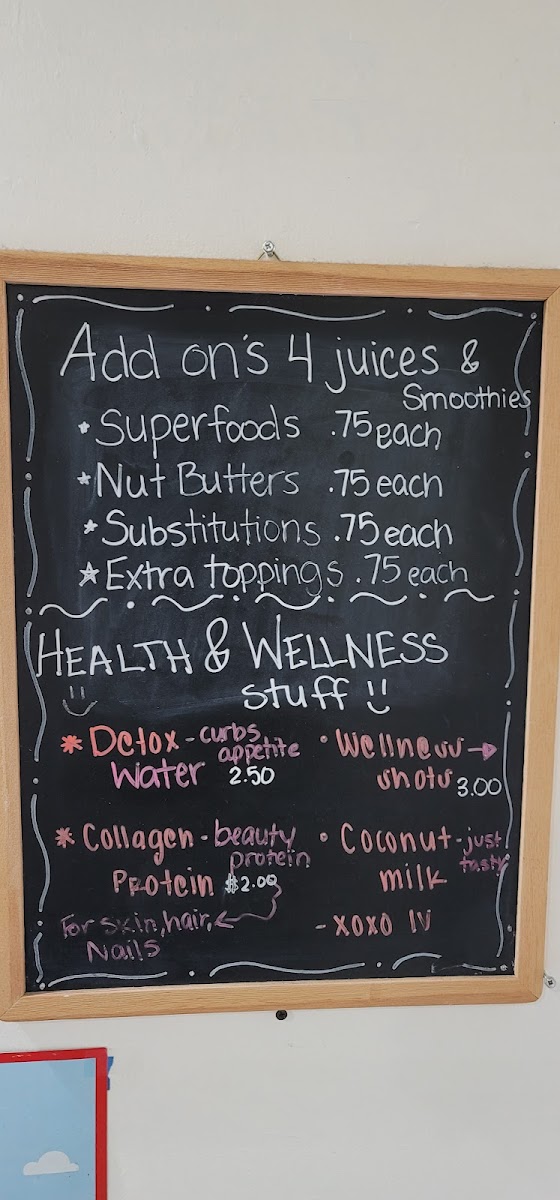 Add on's 4 juices &
Smoothies
* Superfoods .75 each
* Nut Butters .75 each
* Substitutions .75 each
* Extra toppings .75 each
HEALTH & WELLNESS
stuff
* Detox - curbs appetite
Water 2.50
• Wellness →
shots 3.00
* Collagen - beauty protein
Protein $2.00
For skin, hair, ←
Nails
• Coconut - just tasty
milk
- XOXO lv